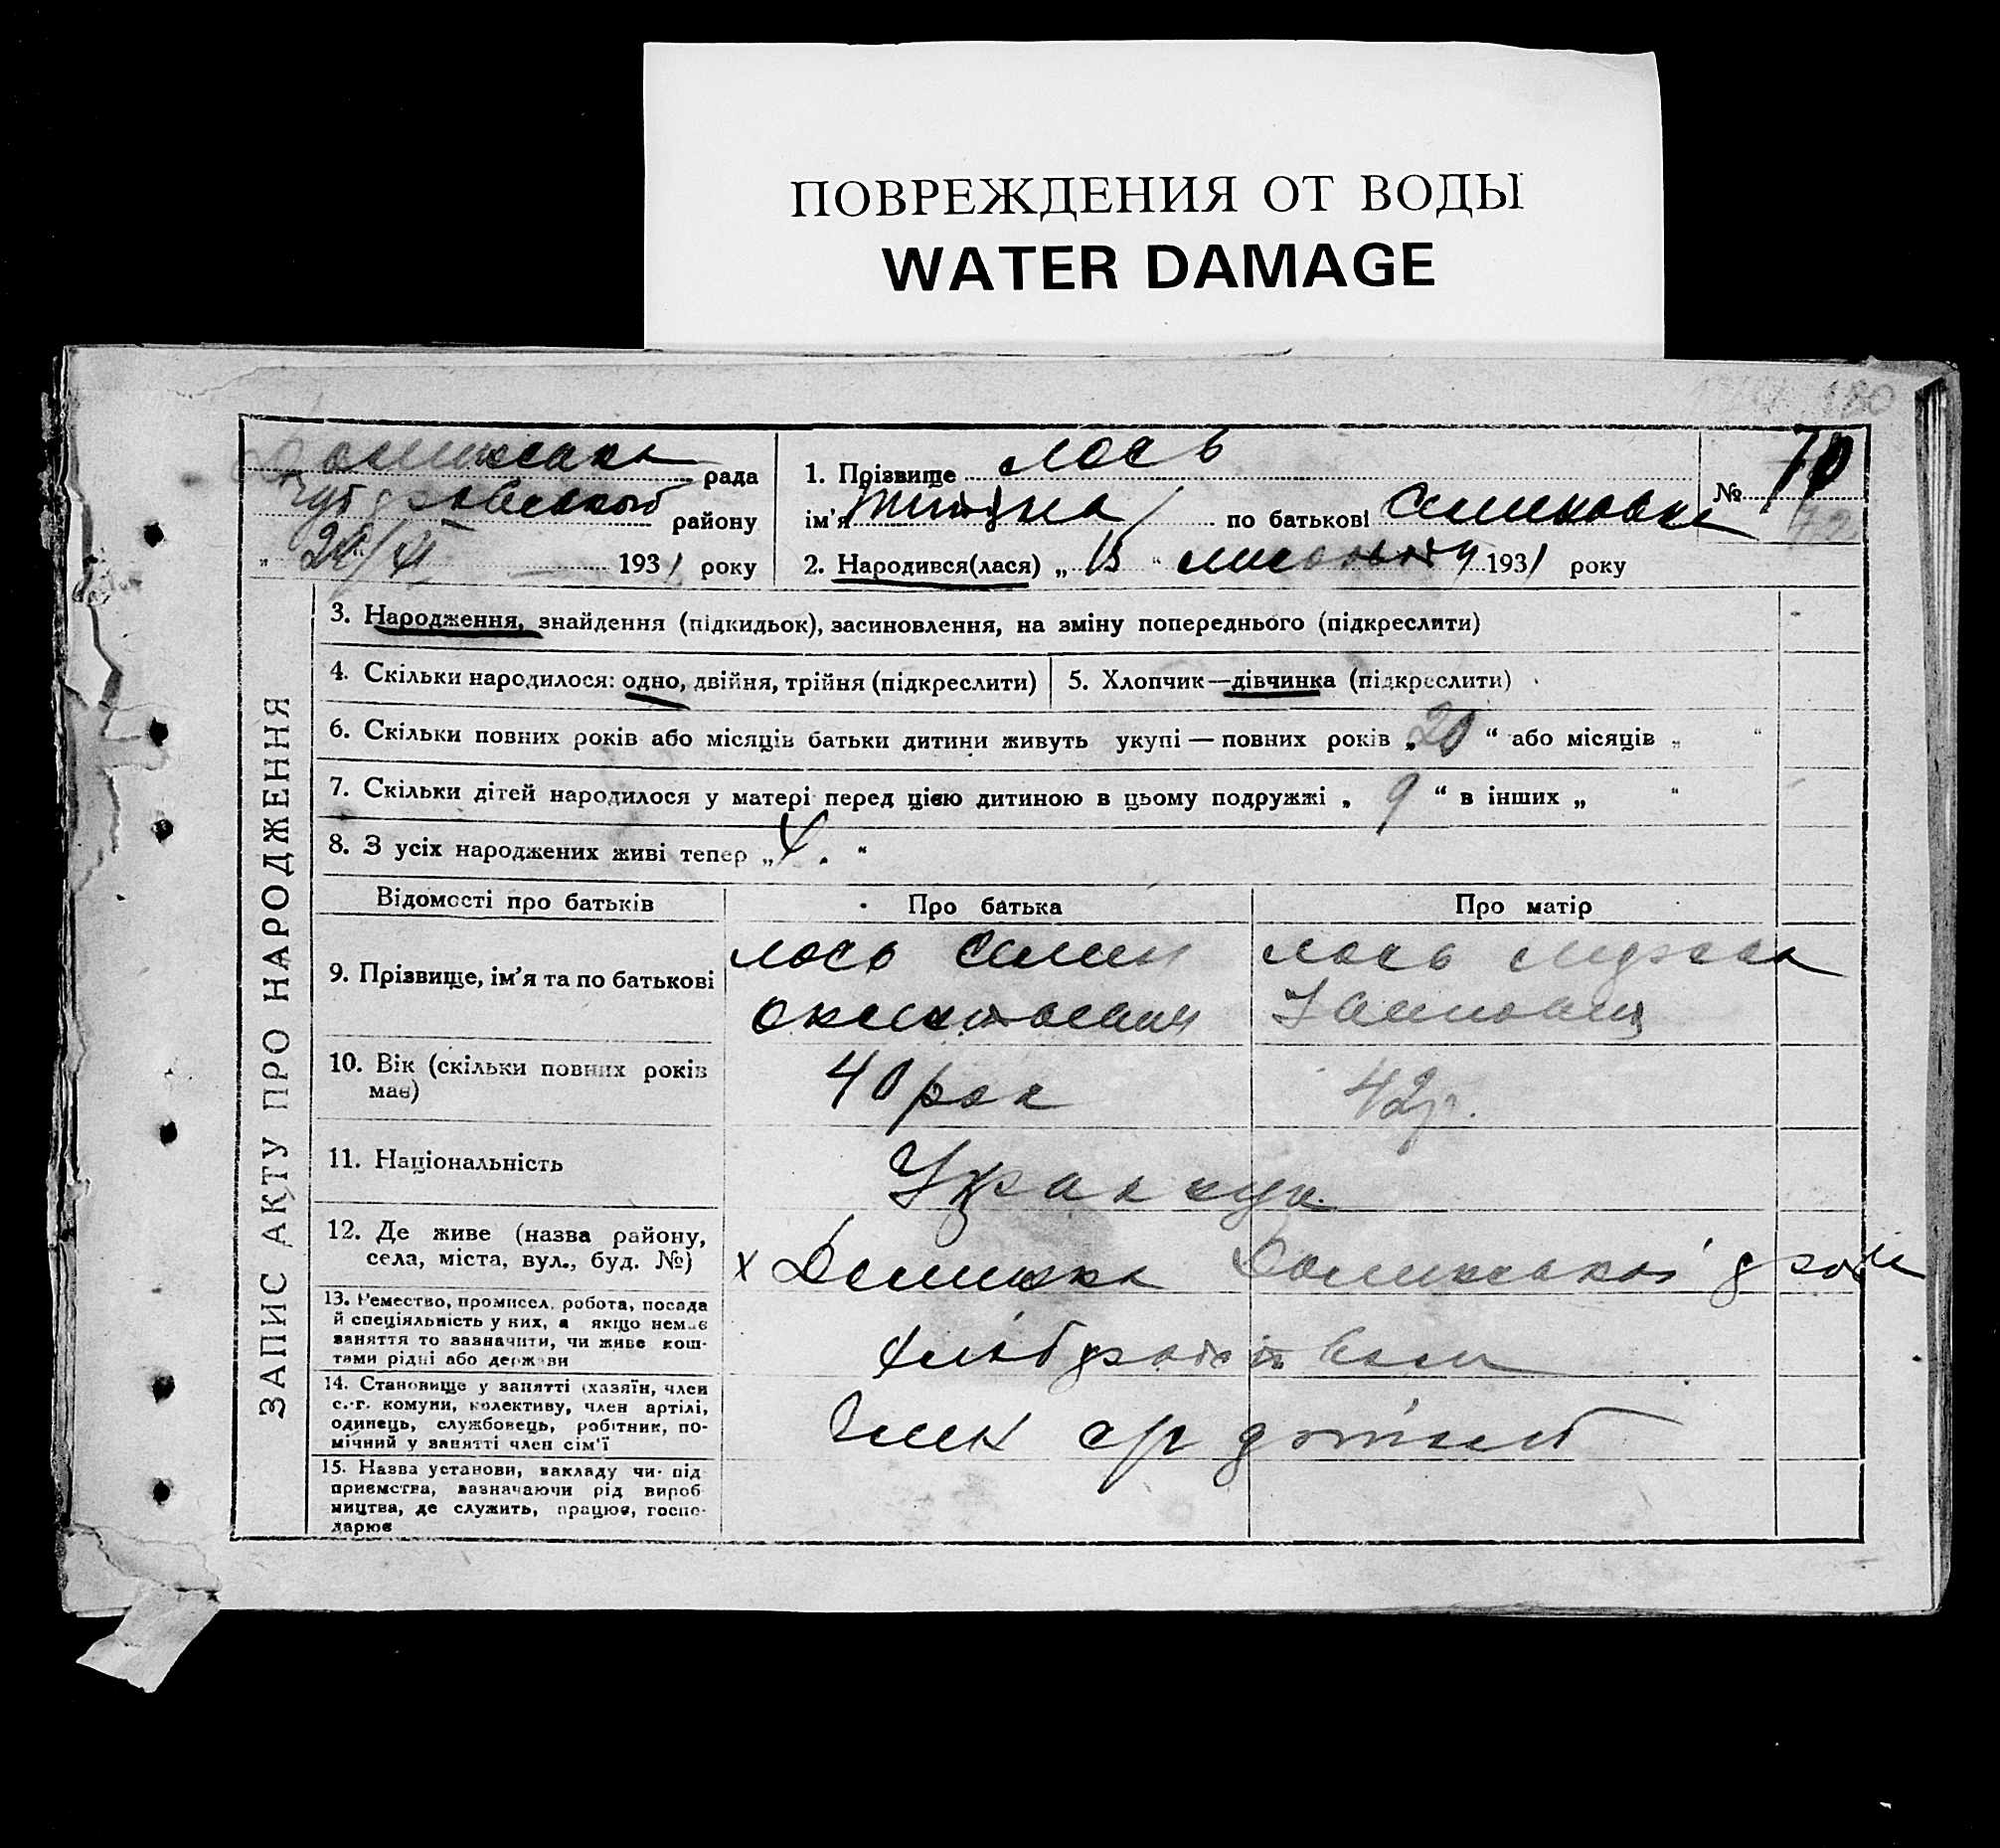 ПОВРЕЖДЕНИЯ ОТ ВОДЫ
WATER DAMAGE
рада
району
1931 року
1. Прізвище Лось
№ 70
ім'я по батькові Семеновна
2. Народився(лася) „ 13 “ 1931 року
ЗАПИС АКТУ ПРО НАРОДЖЕННЯ
3. Народження, знайдення (підкидьок), засиновлення, на зміну попереднього (підкреслити)
4. Скільки народилося: одно, двійня, трійня (підкреслити)
5. Хлопчик—дівчинка (підкреслити)
6. Скільки повних років або місяців батьки дитини живуть укупі — повних років „ 20 “ або місяців „ “
7. Скільки дітей народилося у матері перед цією дитиною в цьому подружжі „ 9 “ в інших „ “
8. З усіх народжених живі тепер „ “
Відомості про батьків
Про батька
Про матір
9. Прізвище, ім'я та по батькові
Лось Семен
Лось
Ивановна
10. Вік (скільки повних років має)
40 рок
42 р.
11. Національність
Українці
12. Де живе (назва району, села, міста, вул., буд. №)
13. Ремество, промисел, робота, посада
й спеціяльність у них, а якщо немає
заняття то зазначити, чи живе кош-
тами рідні або держави
14. Становище у занятті (хазяїн, член
с.-г. комуни, колективу, член артілі,
одинець, службовець, робітник, по-
мічний у занятті член сім'ї
Член
15. Назва установи, закладу чи під
приємства, зазначаючи рід вироб
ництва, де служить, працює, госпо-
дарює